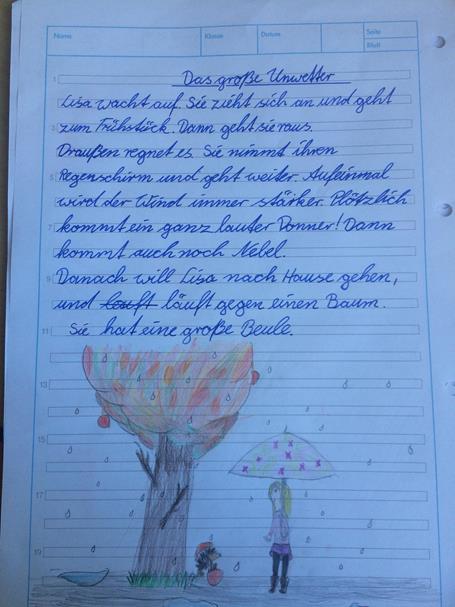 Name Klasse Datum Seite
Blatt
1
Das große Unwetter
Lisa wacht auf. Sie zieht sich an und geht
3 zum Frühstück. Dann geht sie raus.
Draußen regnet es. Sie nimmt ihren
5 Regenschirm und geht weiter. Aufeinmal
wird der Wind immer stärker. Plötzlich
7 kommt ein ganz lauter Donner! Dann
kommt auch noch Nebel.
9 Danach will Lisa nach Hause gehen,
und leuft läuft gegen einen Baum.
11 Sie hat eine große Beule.
13
15
17
19